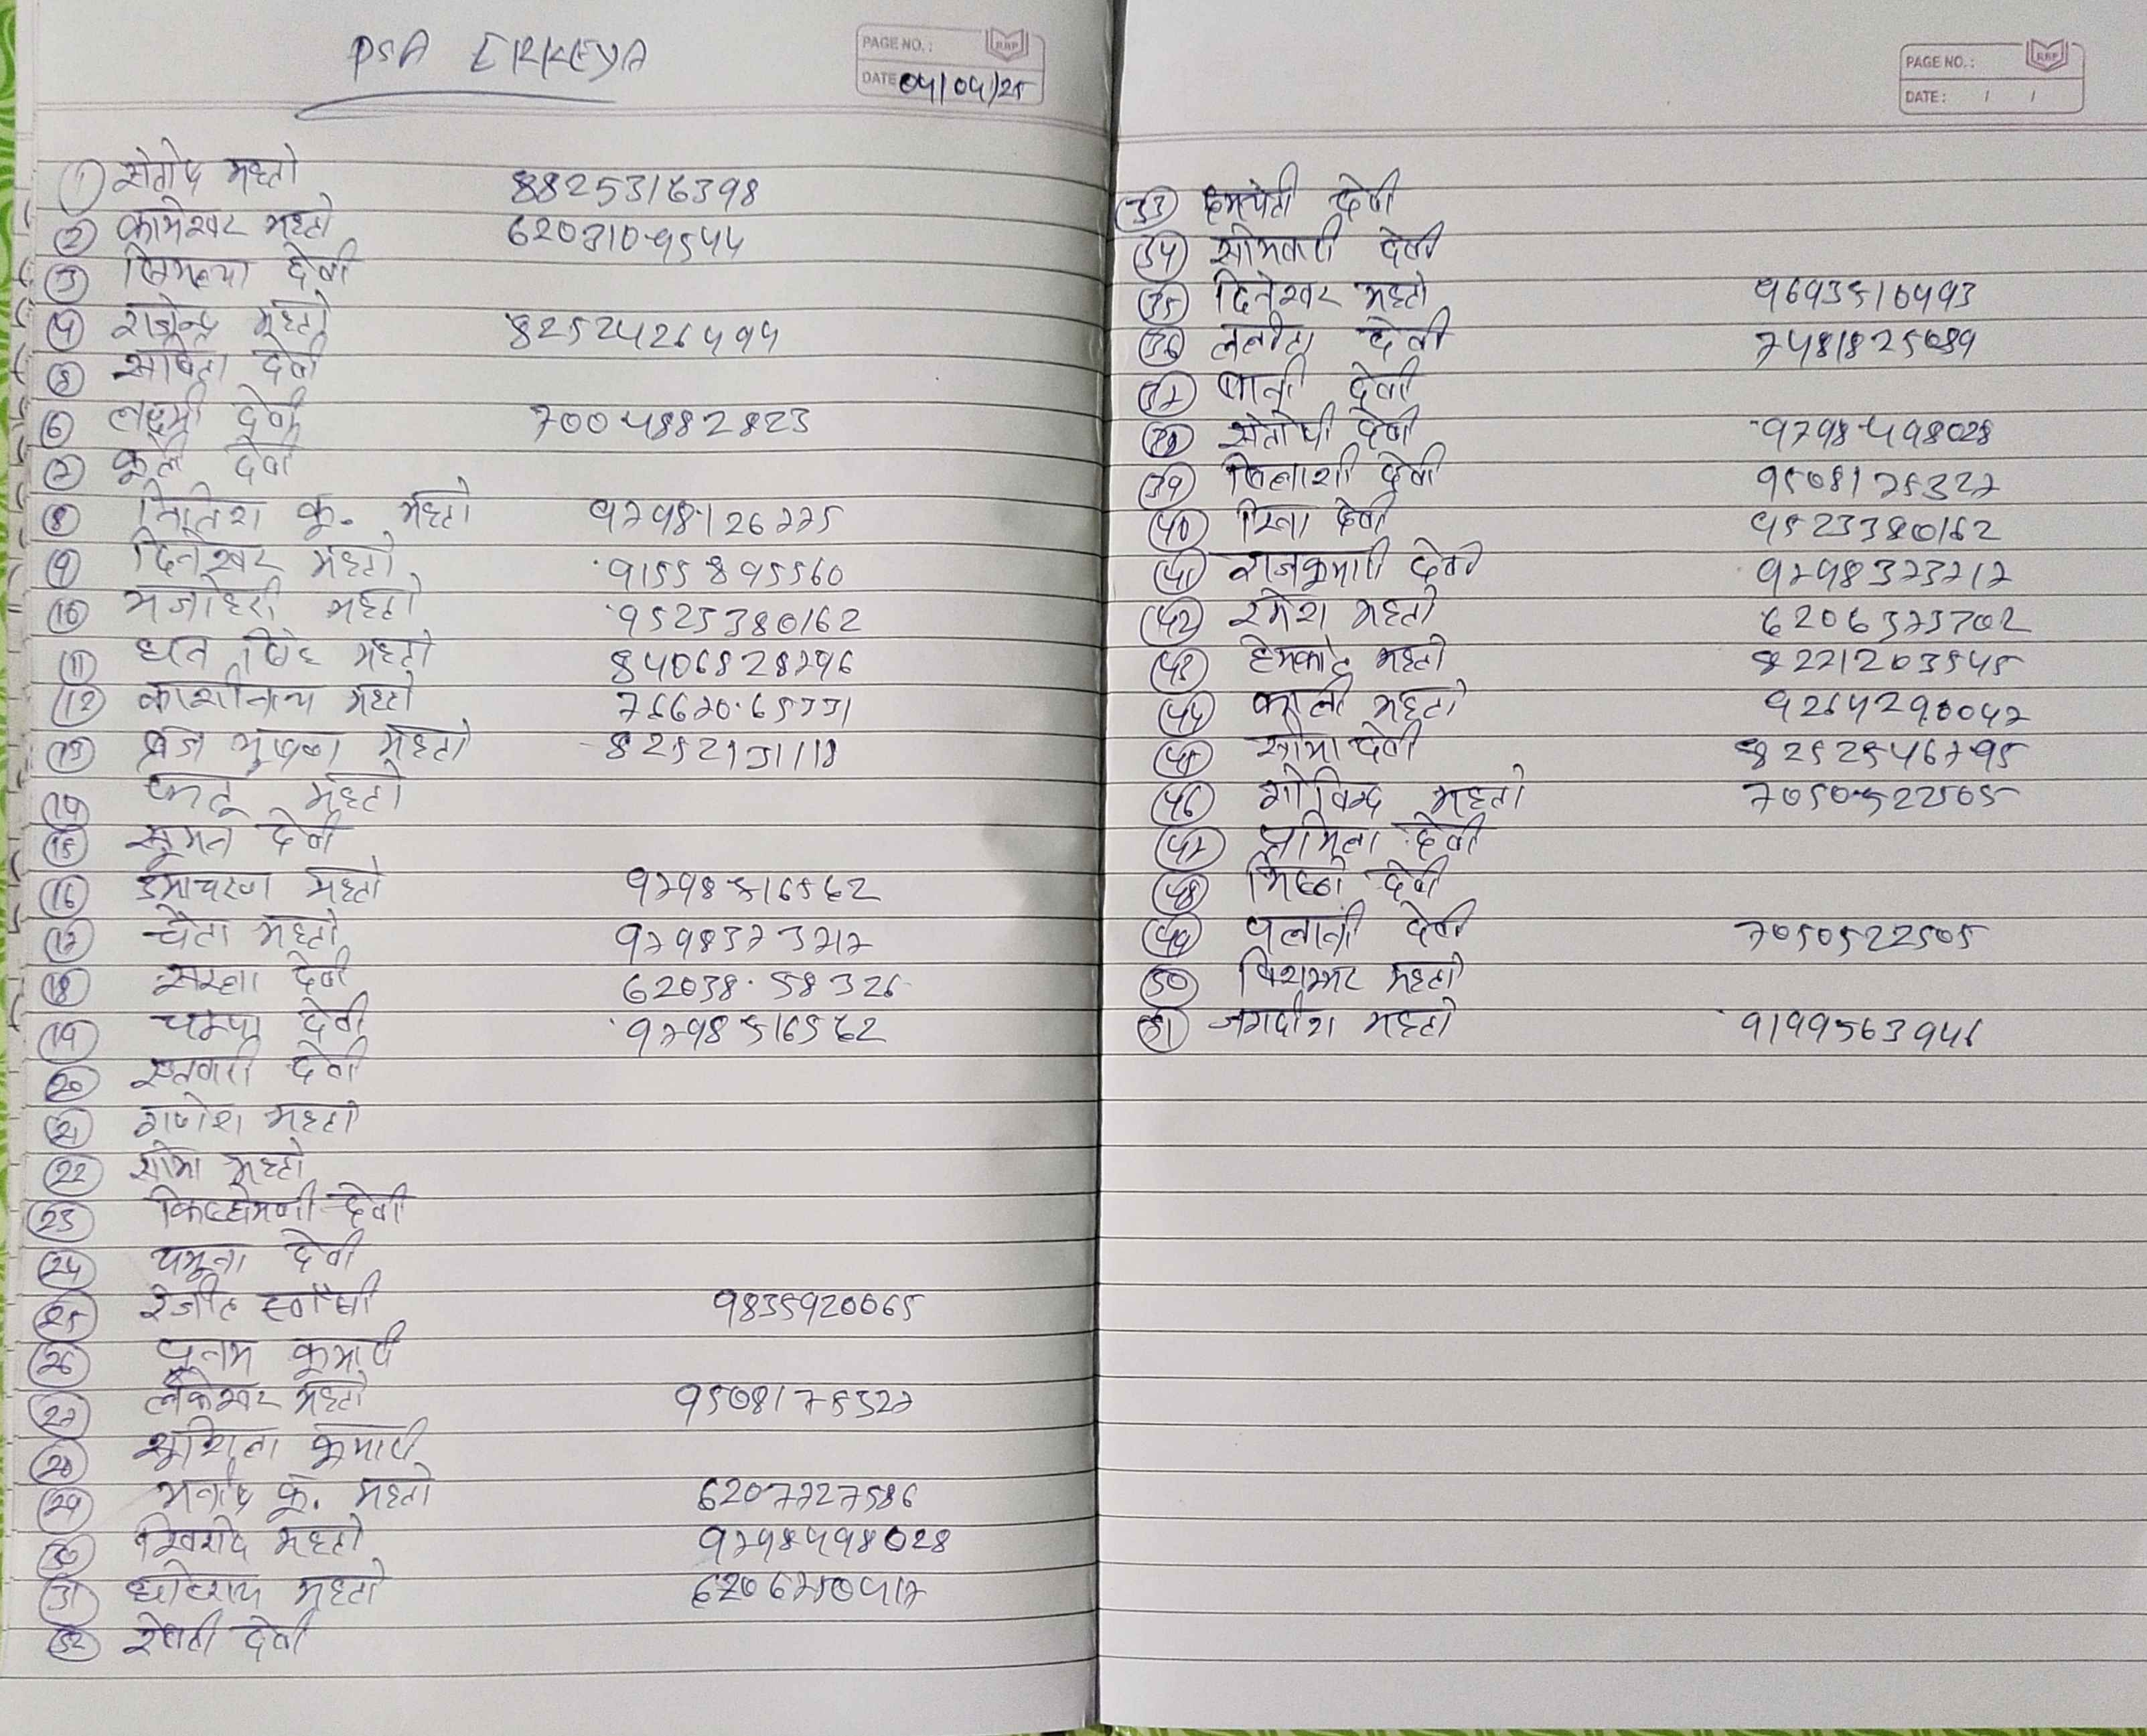 PSA ERKEYA
PAGE NO.:
DATE 04/04/25
① संतोष महतो 8825316398
② कामेश्वर महतो 6203109544
③ विमल्या देवी
④ राजेन्द्र महतो 8252426494
⑤ सावित्रा देवी
⑥ लक्ष्मी देवी 7004882823
⑦ कुंती देवी
⑧ नितिश कु. महतो 9798126775
⑨ दिनेश्वर महतो 9155895560
⑩ मनोहरी महतो 9523380162
⑪ धन सिंह महतो 8406828796
⑫ काशीनाथ महतो 7667065331
⑬ ब्रज भुषण महतो 8252131118
⑭ महतो
⑮ सुमन देवी
⑯ उमाचरण महतो 9798516562
⑰ चैता महतो 9798373717
⑱ सरला देवी 6203858326
⑲ चम्पा देवी 9798516562
⑳ देवी
㉑ गणेश महतो
㉒ सोमा महतो
㉓ देवी
㉔ यमुना देवी
㉕ रंजीत स्वांसी 9835920065
㉖ पुनम कुमारी
㉗ लंकेश्वर महतो 9508175327
㉘ कुमारी
㉙ मनोज कु. महतो 6207727586
㉚ महतो 9798498028
㉛ महतो 6206750417
㉜ रेवती देवी
PAGE NO.:
DATE: / /
㉝ देवी
㉞ सोमवारी देवी
㉟ दिनेश्वर महतो 9693510493
㊱ ललीता देवी 7481825089
㊲ देवी
㊳ संतोषी देवी 9798498028
㊴ विलाशी देवी 9508175327
㊵ रिना देवी 9523380162
㊶ राजकुमारी देवी 9798373717
㊷ रमेश महतो 6206373702
㊸ हेमकांत महतो 8221203545
㊹ काली महतो 9264290047
㊺ सोमा देवी 8252546795
㊻ गोविन्द महतो 7050522505
㊼ प्रमिला देवी
㊽ देवी
㊾ फुलानी देवी 7050522505
㊿ विशम्भर महतो
(51) जगदीश महतो 9199563946